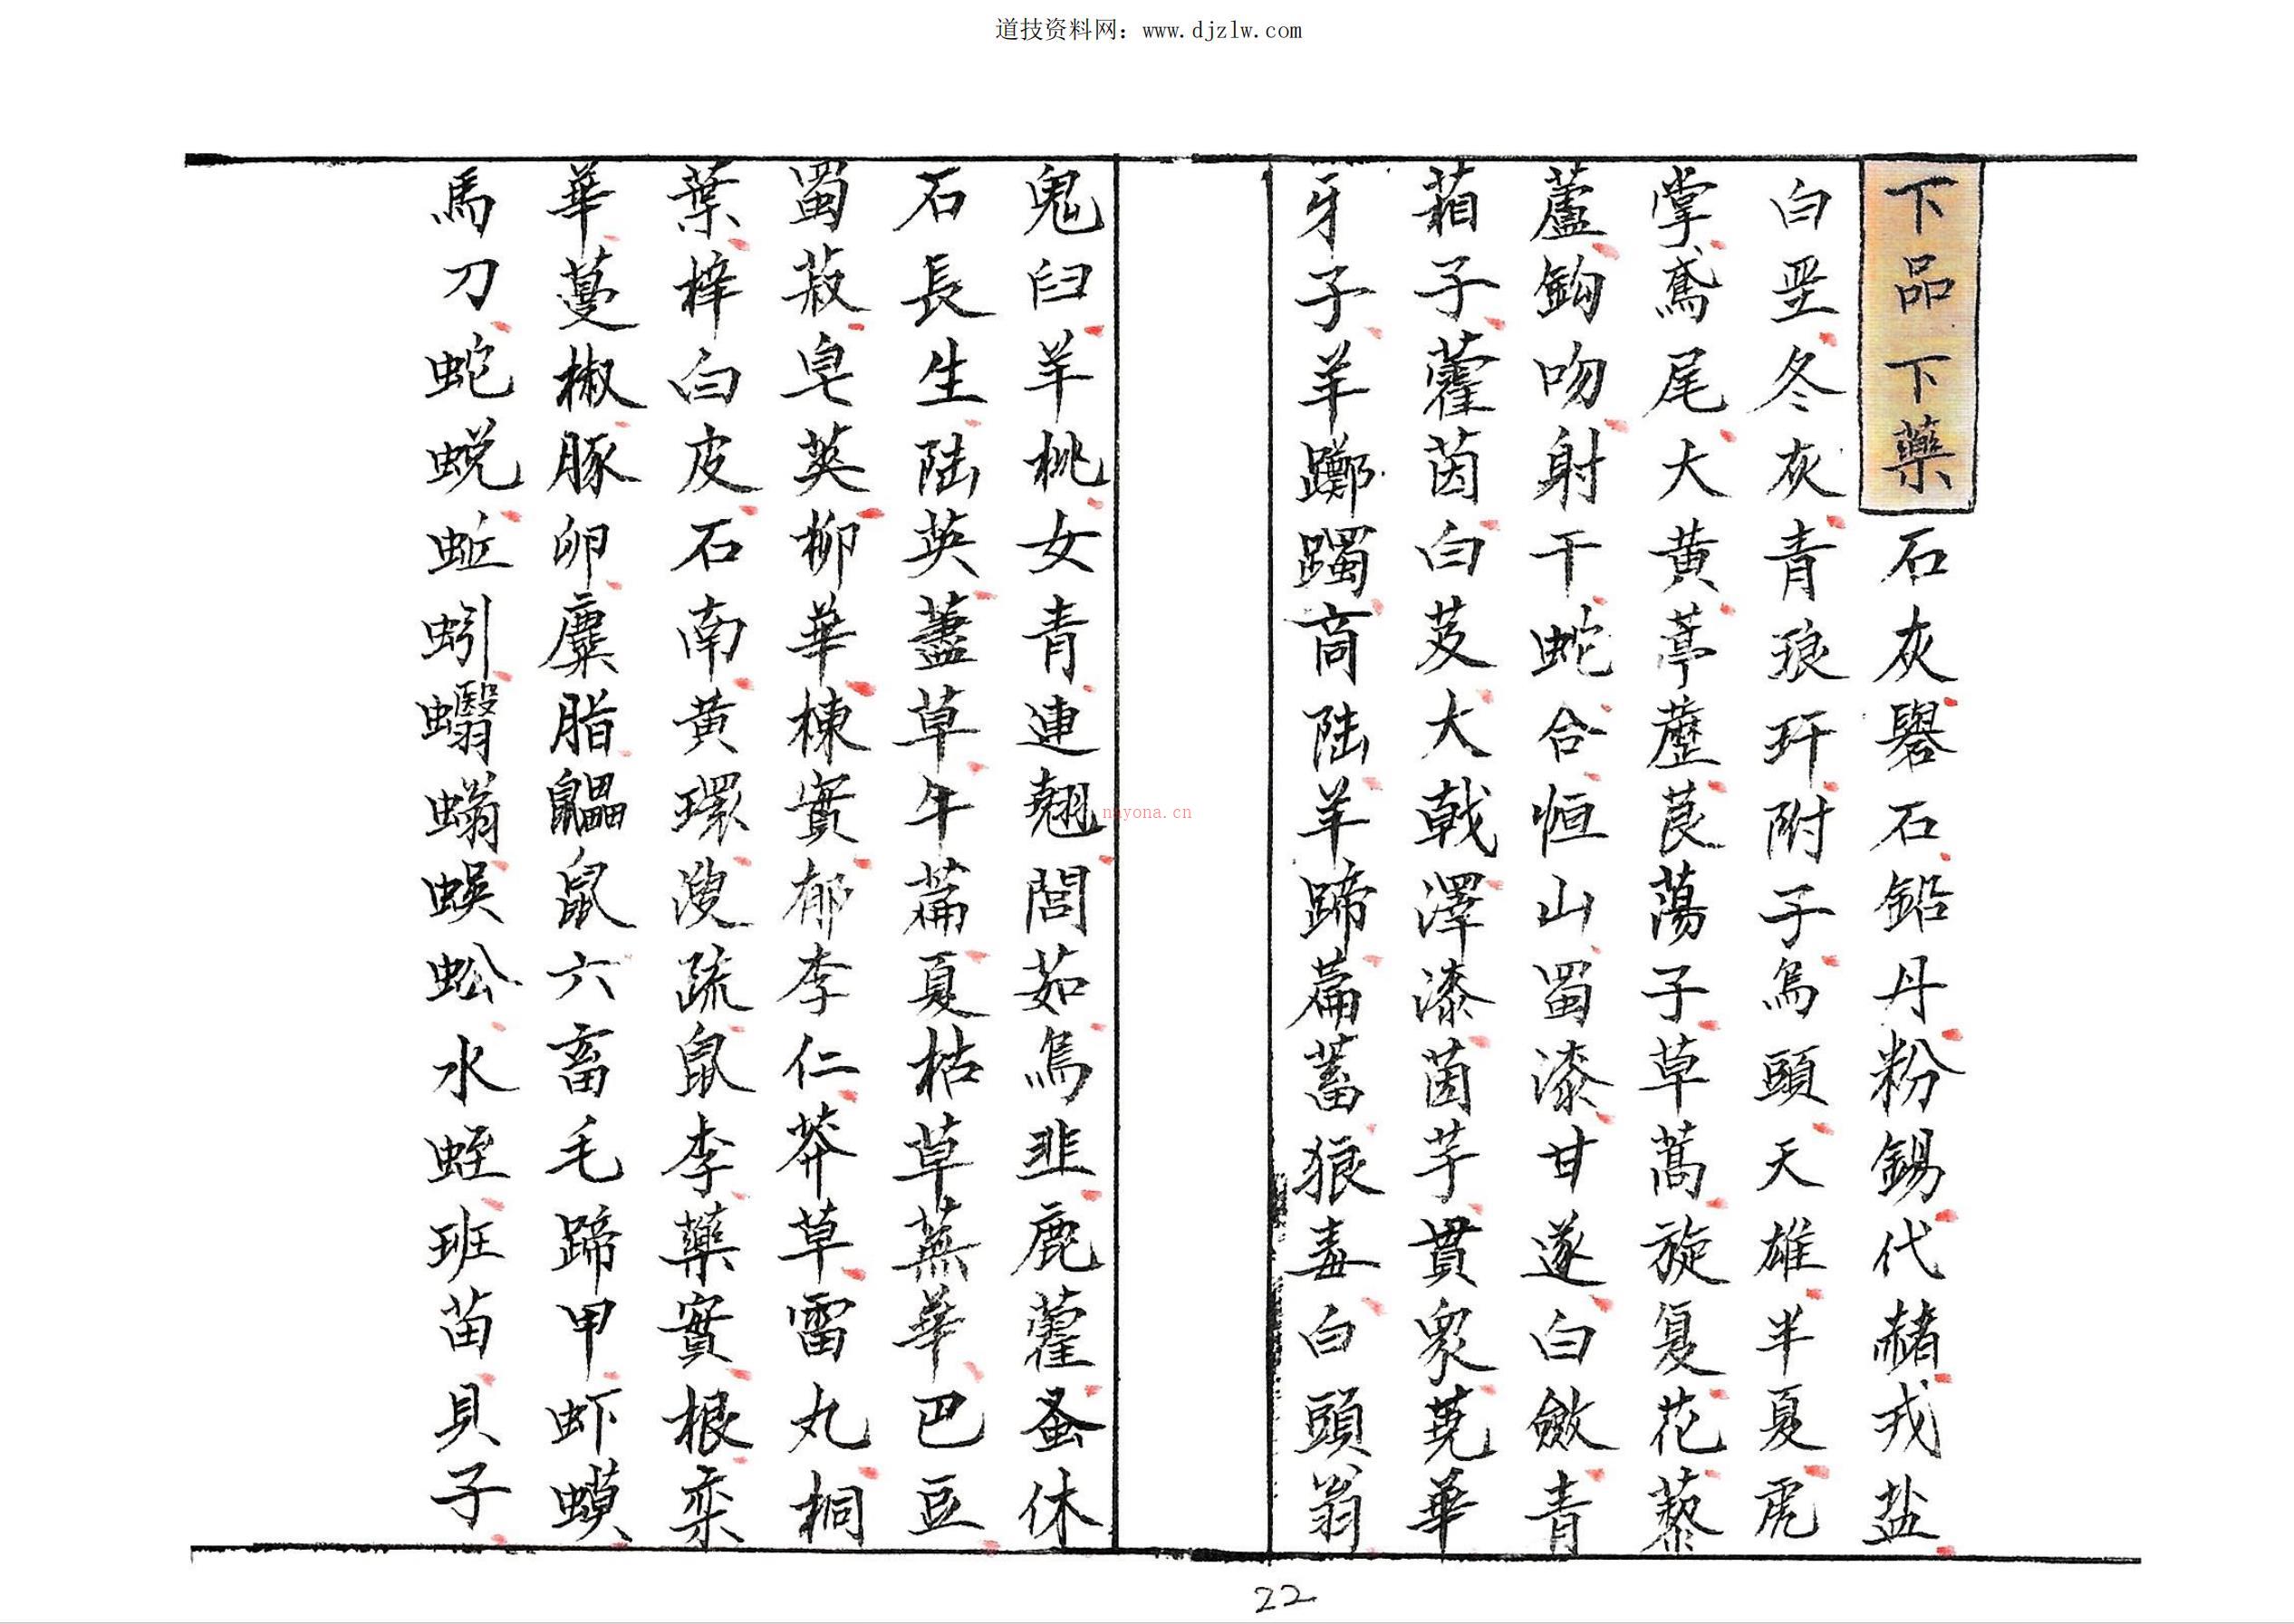 道技资料网：www.djzlw.com
下品下藥石灰礜石鉛丹粉錫代赭戎盐
白垩冬灰青琅玕附子烏頭天雄半夏虎
掌鳶尾大黃葶藶莨蕩子草蒿旋复花藜
蘆鉤吻射干蛇合恒山蜀漆甘遂白斂青
葙子藿菌白芨大戟澤漆茵芋貫眾蕘華
牙子羊躑躅商陆羊蹄萹蓄狼毒白頭翁
鬼臼羊桃女青連翹閭茹烏韭鹿藿蚤休
石長生陆英藎草午萹夏枯草蕪華巴豆
蜀菽皂荚柳華楝實郁李仁莽草雷丸桐
葉梓白皮石南黃環溲疏鼠李藥實根栾
華蔓椒豚卵麋脂鼺鼠六畜毛蹄甲虾蟆
馬刀蛇蜕蚯蚓蠮螉蜈蚣水蛭班苗貝子
nayona.cn
22